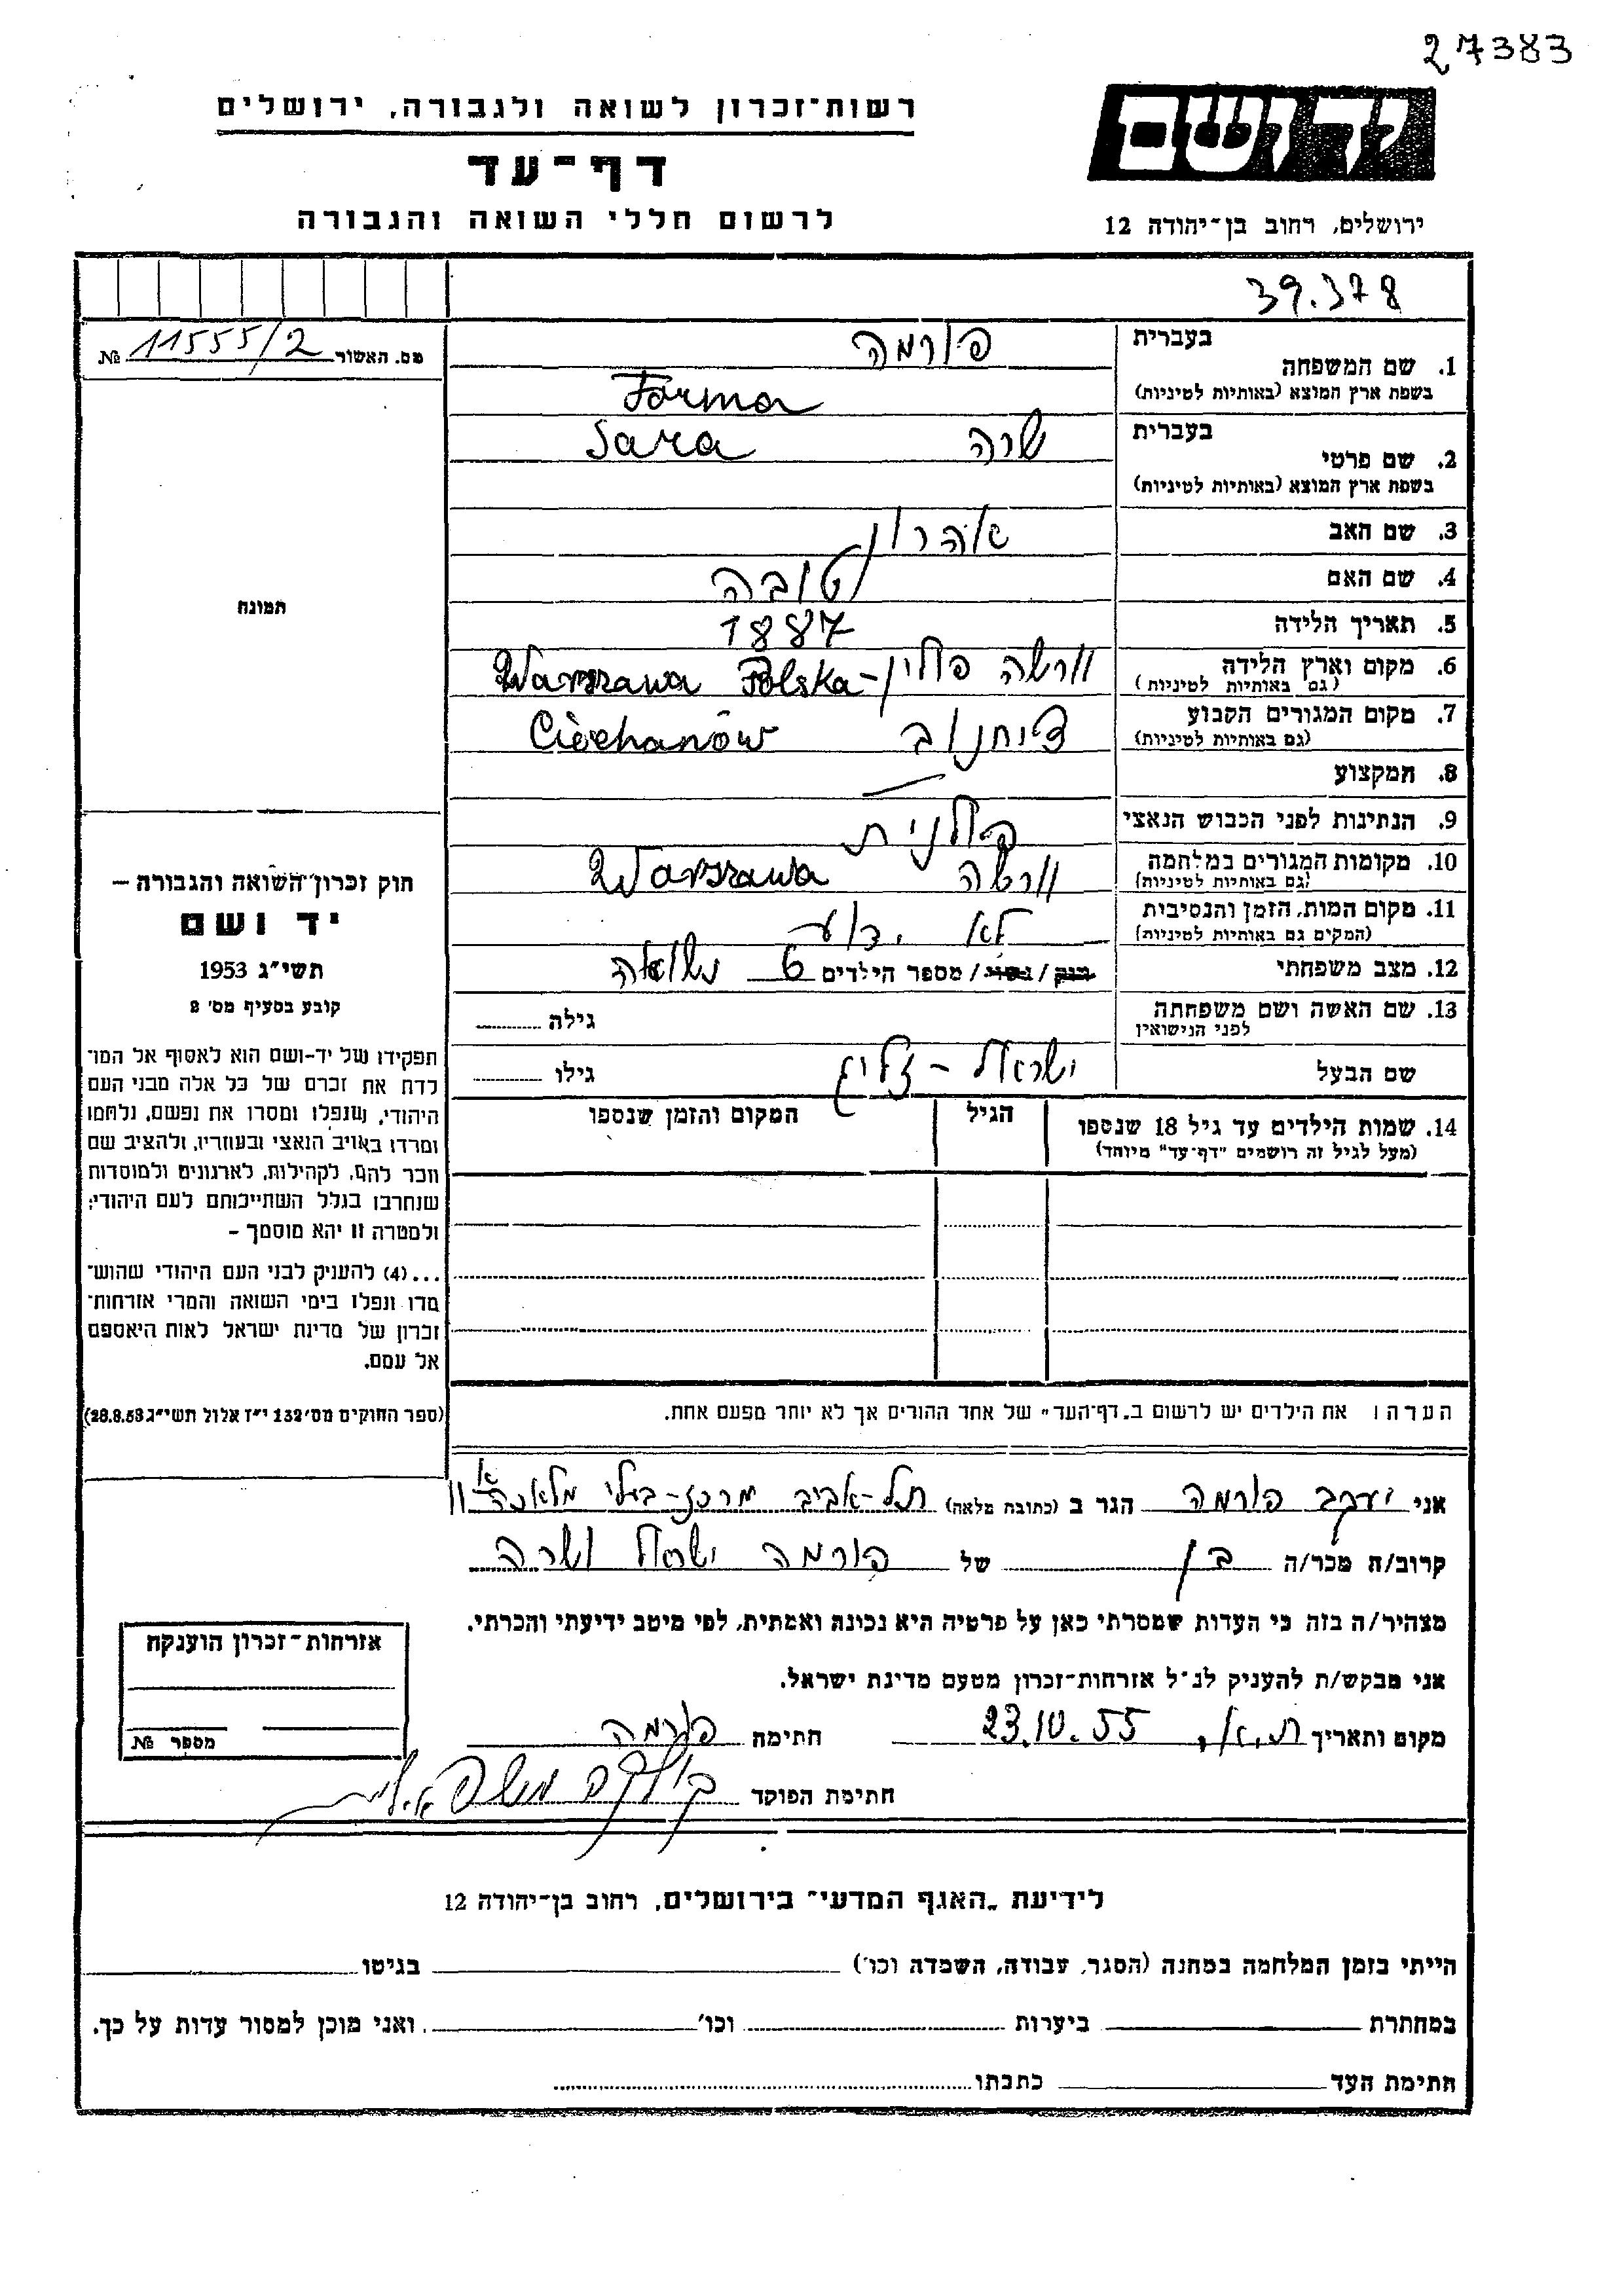 27383
יד ושם
רשות־זכרון לשואה ולגבורה, ירושלים
דף־עד
לרשום חללי השואה והגבורה
ירושלים, רחוב בן־יהודה 12
39.378
מס. האשור 11555/2 №
בעברית פורמה
1. שם המשפחה
בשפת ארץ המוצא (באותיות לטיניות) Forma
בעברית שרה Sara
2. שם פרטי
בשפת ארץ המוצא (באותיות לטיניות)
3. שם האב אהרון
4. שם האם טובה
תמונה
5. תאריך הלידה 1887
6. מקום וארץ הלידה וורשה פולין - Warszawa Polska
(גם באותיות לטיניות)
7. מקום המגורים הקבוע ציחנוב Ciechanów
(גם באותיות לטיניות)
8. המקצוע —
9. הנתינות לפני הכבוש הנאצי פולנית
10. מקומות המגורים במלחמה וורשה Warszawa
(גם באותיות לטיניות)
11. מקום המות, הזמן והנסיבות לא ידוע
(המקום גם באותיות לטיניות)
12. מצב משפחתי רווק / נשוי / מספר הילדים 6 נשואה
13. שם האשה ושם משפחתה גילה
לפני הנישואין
שם הבעל ישראל - זליג גילו
14. שמות הילדים עד גיל 18 שנספו הגיל המקום והזמן שנספו
(מעל לגיל זה רושמים "דף־עד" מיוחד)
חוק זכרון השואה והגבורה –
יד ושם
תשי"ג 1953
קובע בסעיף מס' 2
תפקידו של יד-ושם הוא לאסוף אל המו־
לדת את זכרם של כל אלה מבני העם
היהודי, שנפלו ומסרו את נפשם, נלחמו
ומרדו באויב הנאצי ובעוזריו, ולהציב שם
וזכר להם, לקהילות, לארגונים ולמוסדות
שנחרבו בגלל השתייכותם לעם היהודי;
ולמטרה זו יהא מוסמך –
...(4) להעניק לבני העם היהודי שהוש־
מדו ונפלו בימי השואה והמרי אזרחות־
זכרון של מדינת ישראל לאות היאספם
אל עמם.
(ספר החוקים מס' 132 י"ז אלול תשי"ג 28.8.53)
הערה: את הילדים יש לרשום ב"דף־העד" של אחד ההורים אך לא יותר מפעם אחת.
אני יעקב פורמה הגר ב (כתובת מלאה) תל-אביב מרכז-בעלי מלאכה 11 א
קרוב/ה מכר/ה בן של פורמה ישראל ושרה
מצהיר/ה בזה כי העדות שמסרתי כאן על פרטיה היא נכונה ואמתית, לפי מיטב ידיעתי והכרתי.
אני מבקש/ת להעניק לנ"ל אזרחות־זכרון מטעם מדינת ישראל.
מקום ותאריך ת.א. 23.10.55 חתימה פורמה
חתימת הפוקד
אזרחות־זכרון הוענקה
מספר №
לידיעת "האגף המדעי" בירושלים, רחוב בן־יהודה 12
הייתי בזמן המלחמה במחנה (הסגר, עבודה, השמדה וכו') בגיטו
במחתרת ביערות וכו' ואני מוכן למסור עדות על כך.
חתימת העד כתבתו